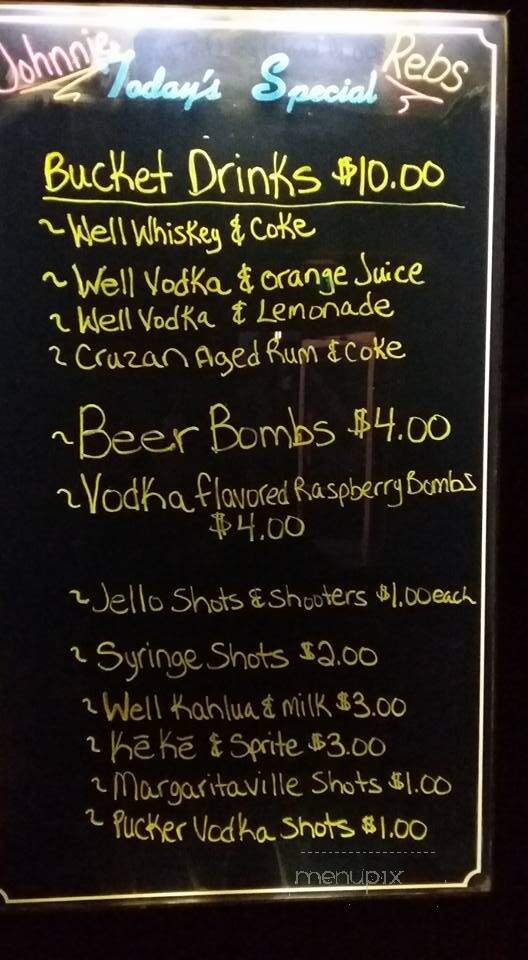 Johnnie Rebs
Today's Special
Bucket Drinks $10.00
~Well Whiskey & Coke
~Well Vodka & Orange Juice
~Well Vodka & Lemonade
~Cruzan Aged Rum & Coke
~Beer Bombs $4.00
~Vodka flavored Raspberry Bombs
$4.00
~Jello Shots & Shooters $1.00 each
~Syringe Shots $2.00
~Well Kahlua & milk $3.00
~Kē Kē & Sprite $3.00
~Margaritaville Shots $1.00
~Pucker Vodka Shots $1.00
menupix